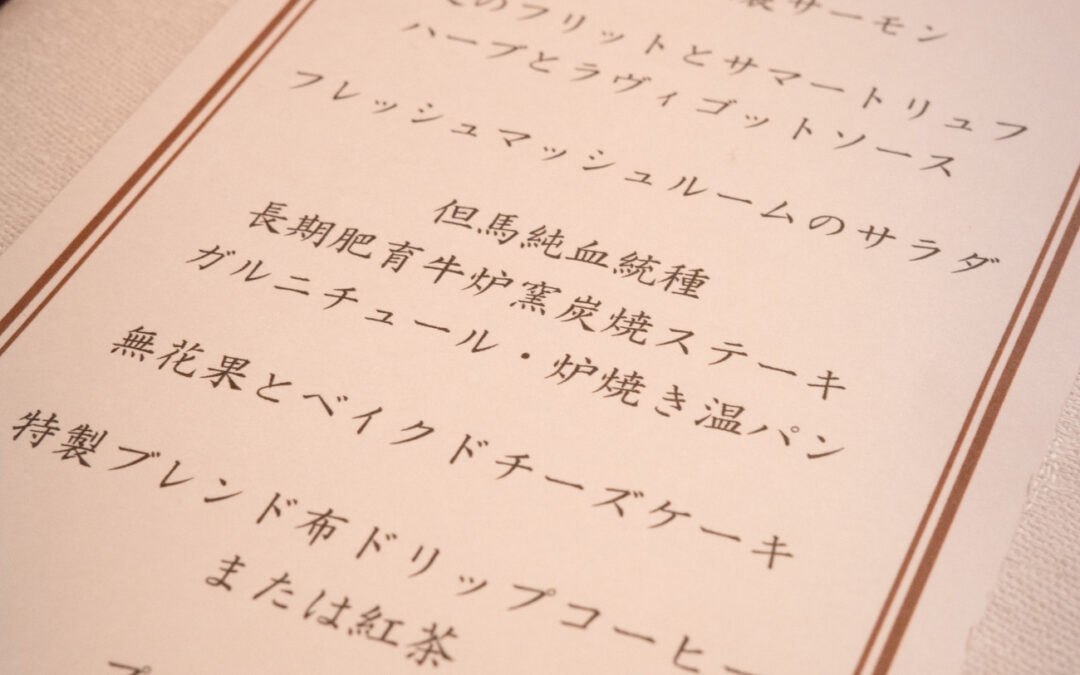 製サーモン
のフリットとサマートリュフ
ハーブとラヴィゴットソース
フレッシュマッシュルームのサラダ
但馬純血統種
長期肥育牛炉窯炭焼ステーキ
ガルニチュール・炉焼き温パン
無花果とベイクドチーズケーキ
特製ブレンド布ドリップコーヒー
または紅茶
プ